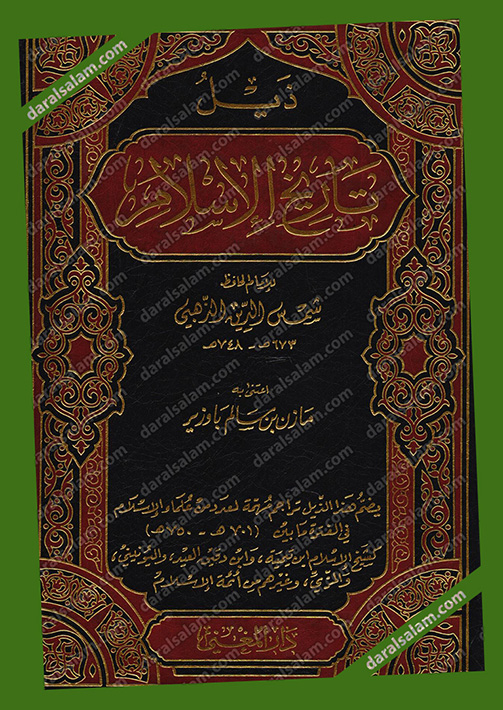 daralsalam.com
ذيل
تاريخ الإسلام
للإمام الحافظ
شمس الدين الذهبي
٦٧٣هـ - ٧٤٨هـ
اعتنى به
مازن بن سالم باوزير
يضم هذا الذيل تراجم مهمة لعدد من علماء الإسلام
في الفترة ما بين (٧٠١هـ - ٧٥٠هـ)
كشيخ الإسلام ابن تيمية، وابن دقيق العيد، واليونيني،
والمزي، وغيرهم من أئمة الإسلام
دار المغني
daralsalam.com